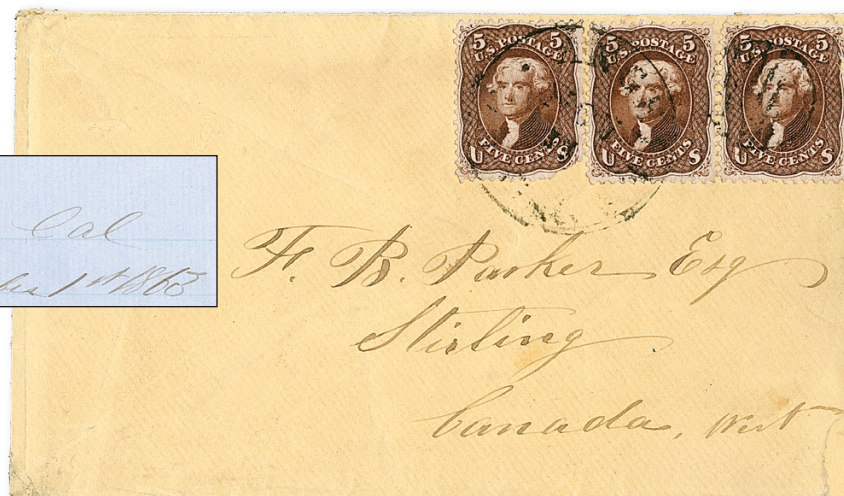 5 U.S. POSTAGE 5
U FIVE CENTS S
5 U.S. POSTAGE 5
U FIVE CENTS S
5 U.S. POSTAGE 5
U FIVE CENTS S
Cal
1st 1863
F. B. Parker Esq
Stirling
Canada, West